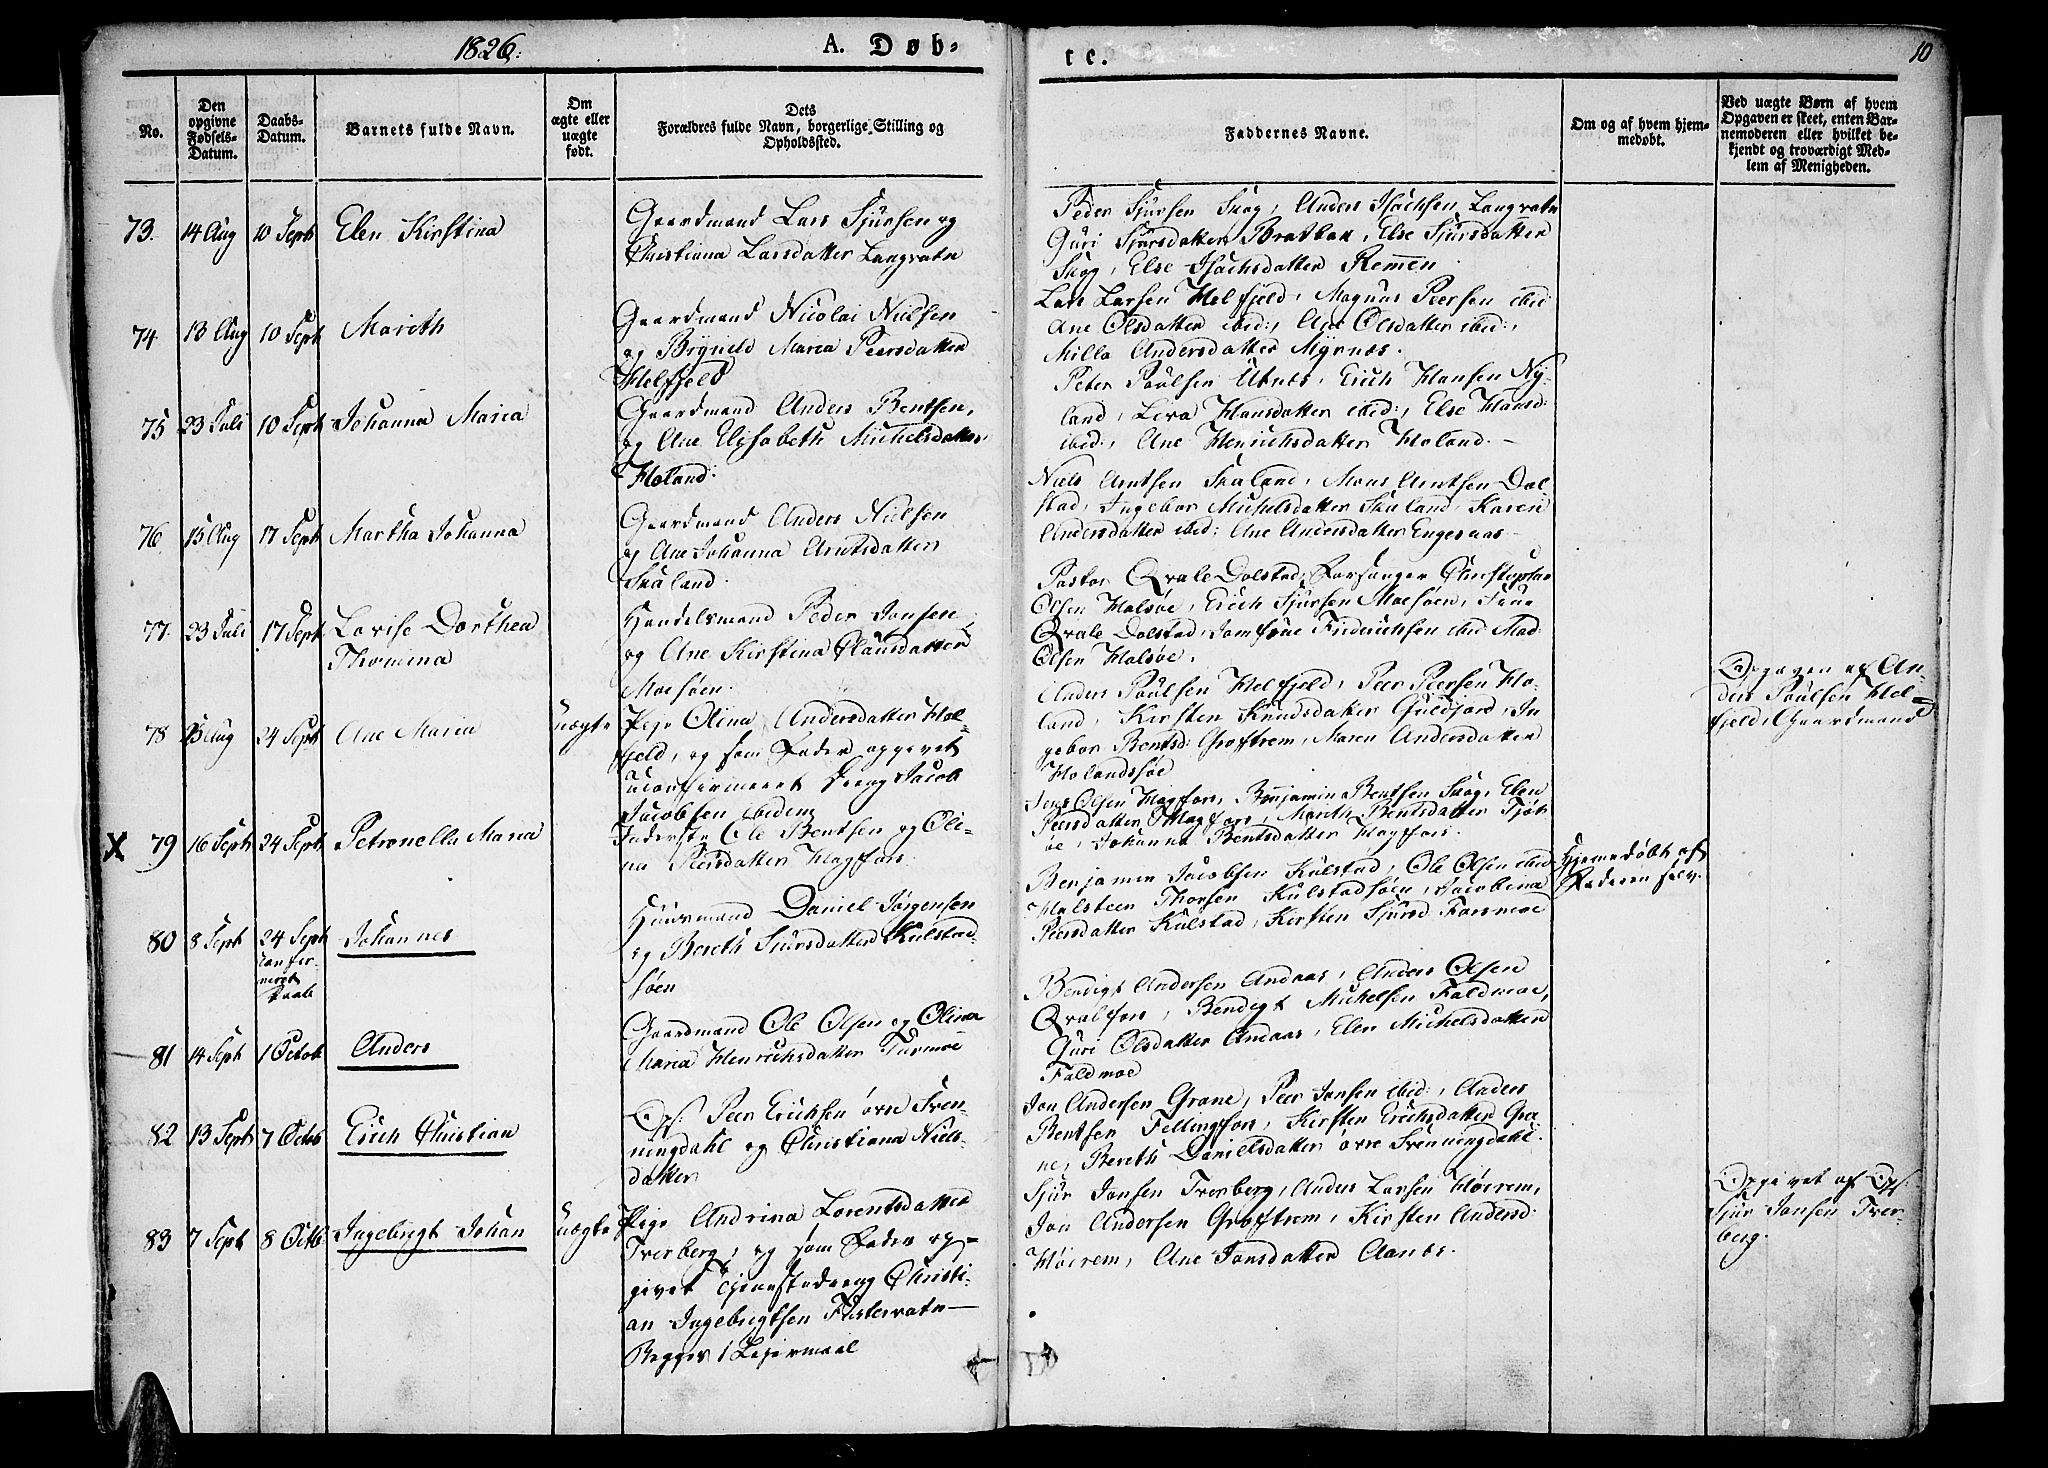 1826.
A. Døb-
te.
10
No.
Den
opgivne
Fødsels-
Datum.
Daabs-
Datum.
Barnets fulde Navn.
Om
ægte eller
uægte
født.
Dets
Forældres fulde Navn, borgerlige Stilling og
Opholdssted.
Faddernes Navne.
Om og af hvem hjem-
medøbt.
Ved uægte Børn af hvem
Opgaven er skeet, enten Bar-
nemoderen eller hvilket be-
kjendt og troværdigt Med-
lem af Menigheden.
73.
14 Aug
10 Sept
Elen Kirstina
Gaardmand Lars Sjursen og
Christiana Larsdatter Langvatn
Peder Sjursen Skog, Anders Isachsen Langvatn
Guri Sjursdatter Bratlan, Else Sjursdatter
Skog, Else Isachsdatter Remen
74
13 Aug
10 Sept
Mareth
Gaardmand Nicolai Nielsen
og Brynild Maria Peersdatter
Helfjeld
Lars Larsen Helfjeld, Magnus Peersen ibid
Ane Olsdatter ibid:, Ane Olsdatter ibid:,
Milla Andersdatter Myrnæs.
75
23 Juli
10 Sept
Johanna Maria
Gaardmand Anders Bentsen,
og Ane Elisabeth Michelsdatter
Holand:
Peter Paulsen Utnæs, Erich Hansen Ny-
land, Liva Hansdatter ibid:, Else Hansd:
ibid:, Ane Henrichsdatter Holand. -
76
15 Aug
17 Sept
Martha Johanna
Gaardmand Anders Nielsen
og Ane Johanna Arntsdatter
Skaland.
Niels Arntsen Skaland, Mons Arntsen Dol-
stad, Ingebor Michelsdatter Skaland, Karen
Andersdatter ibid: Ane Andersdatter Engesaas -
77.
23 Juli
17 Sept
Lovise Dorthea
Thomina
Handelsmand Peder Jansen
og Ane Kirstina Clausdatter
Moesøen.
Pastor Qvale Dolstad, Forsanger Christopher
Olsen Halsøe, Erich Sjursen Moesøen, Frue
Qvale Dolstad, Jomfrue Friderichsen ibid Mad:
Olsen Halsøe.
78
13 Aug
24 Sept
Ane Maria
uægte
Pige Olina Andersdatter Hel-
fjeld, og som Fader opgivet
uconfirmeret Dreng Jacob
Jacobsen ibidem
Anders Paulsen Helfjeld, Peer Peersen Ho-
land, Kirsten Knudsdatter Guldfjord, In
gebor Bentsd: Groftrem, Maren Andersdatter
Holandsøe
Opgaven af An-
ders Paulsen Hel-
fjeld, Gaardmand
X
79
16 Sept
24 Sept
Petronella Maria
Inderste Ole Bentsen og Oli-
na Peersdatter Hagfors.
Jens Olsen Hagfors, Benjamin Bentsen Skog, Elen
Peersdatter Hagfors, Mareth Bentsdatter Tjøt-
øe, Johanna Bentsdatter Hagfors.
80
8 Sept
24 Sept
confir-
meret
Daab
Johannes
Huusmand Daniel Jørgensen
og Bereth Sjursdatter Kulstad-
søen
Benjamin Jacobsen Kulstad, Ole Olsen ibid
Halsteen Thorsen Kulstadsøen, Jacobina
Peersdatter Kulstad, Kirsten Sjursd Forsmoe
Hjemmedøbt af
Faderen selv.
81
14 Sept
1 Octob
Anders
Gaardmand Ole Olsen og Olina
Maria Henrichsdatter Turmoe
Bendigt Andersen Andaas, Anders Olsen
Qvalfors, Bendigt Michelsen Faldmoe,
Guri Olsdatter Andaas, Elen Michelsdatter
Faldmoe
82
13 Sept
7 Octob
Erich Christian
Ops. Peer Erichsen øvre Sven-
ningdahl og Christiana Niels-
datter
Jon Andersen Grane, Peer Jonsen ibid:, Anders
Bentsen Fellingfors, Kirsten Erichsdatter Gra-
ne, Bereth Danielsdatter øvre Svenningdahl.
83
7 Sept
8 Octb
Ingebrigt Johan
uægte
Pige Andrina Lorentsdatter
Tverberg, og som Fader op-
givet Tjenestedreng Christi-
an Ingebrigtsen Fustervatn -
Begges 1 Leiermaal
Sjur Jonsen Tverberg, Anders Larsen Høirem,
Jon Andersen Groftrem, Kirsten Andersd:
Høirem, Ane Jonsdatter Aanes.
Opgivet af Ops.
Sjur Jonsen Tver-
berg.